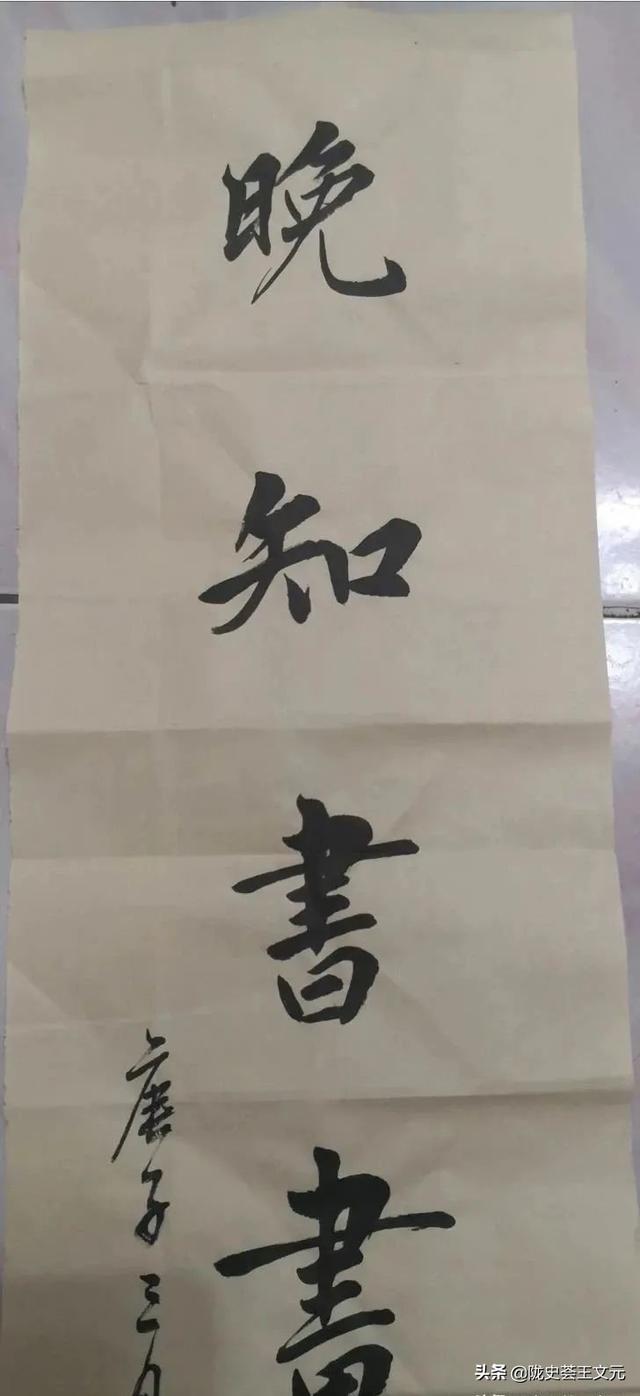 晚知書畫
庚子三月
头条 @陇史荟王文元